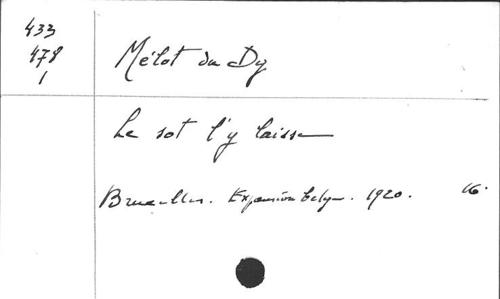 433
478
1
Mélot du Dy
Le sot l'y laisse
Bruxelles. Expansion belge. 1920. 16.